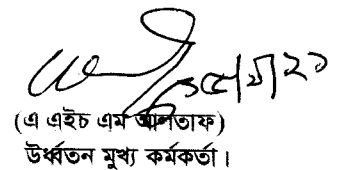 (এ এইচ এম আলতাফ)
উর্ধ্বতন মুখ্য কর্মকর্তা।